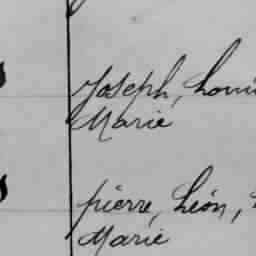 Joseph, Louis
Marie
pierre, Léon,
Marie